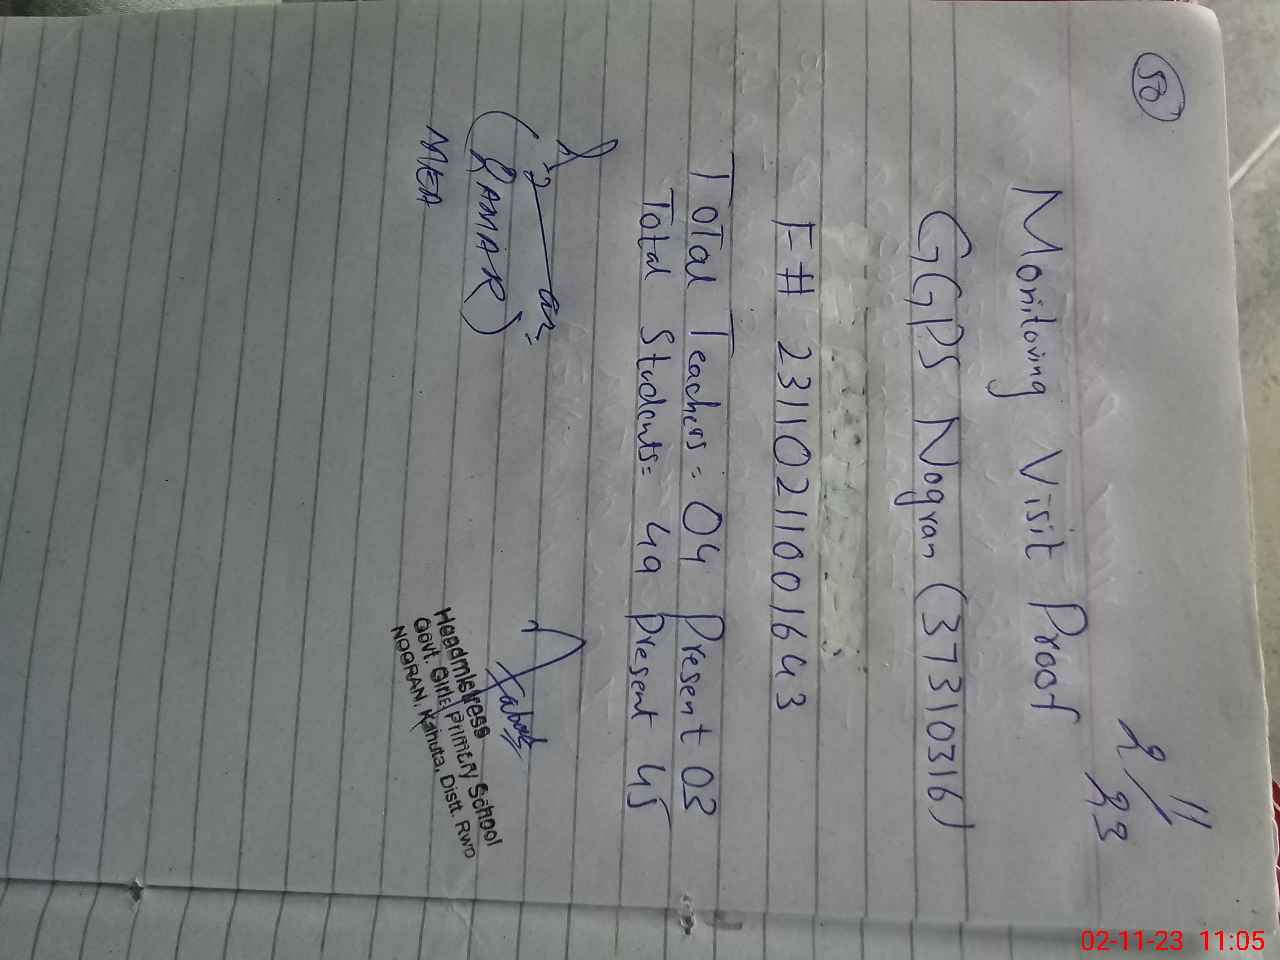 50
2/11/23
Monitoring Visit Proof
GGPS Nogran (37310316)
F# 2311021001643
Total Teachers = 04 Present 03
Total Students = 49 Present 45
(QAMAR)
MEA
Headmistress
Govt. Girls Primery School
NOGRAN, Kahuta, Distt. RWP
02-11-23 11:05